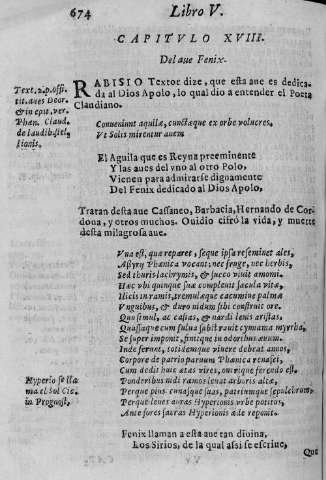 674
Libro V.
CAPITVLO XVIII.
Del aue Fenix.
RABISIO Textor dize, que esta aue es dedica-
da al Dios Apolo, lo qual dio a entender el Poeta
Claudiano.
Text. 2. p. offi.
tit. aues Deor.
& in epit. ver.
Phœn. Claud.
de laudib. stel,
lionis.
Conueniunt aquilæ, cunctæque ex orbe volucres,
Vt Solis mirentur auem
El Aguila que es Reyna preeminente
Y las aues del vno al otro Polo,
Vienen para admirarse dignamente
Del Fenix dedicado al Dios Apolo,
Tratan desta aue Cassaneo, Barbacia, Hernando de Cor-
dona, y otros muchos. Ouidio cifrò la vida, y muerte
desta milagrosa aue.
Vna est, quæ reparet, seque ipsa reseminet ales,
Assyrij Phœnica vocant; nec fruge, nec herbis,
Sed thuris lacrymis, & succo viuit amomi.
Hæc vbi quinque suæ compleuit sæcula vitæ,
Ilicis in ramis, tremulæque cacumine palmæ
Vnguibus, & duro nidum sibi construit ore.
Quo simul, ac casias, & nardi lenis aristas,
Quassaque cum fulua substrauit cynnama myrrha,
Se super imponit, finitque in odoribus æuum.
Inde ferunt, totidem que viuere debeat annos,
Corpore de patrio paruum Phœnica renasci,
Cum dedit huic ætas vires, onerique ferendo est,
Ponderibus nidi ramos leuat arboris altæ,
Fertque pius cunasque suas, patriumque sepulchrum
Perque leues auras Hyperionis vrbe potitus,
Ante fores sacras Hyperionis æde reponit.
Hyperio se lla
ma el Sol Cic.
in Prognost.
Fenix llaman a esta aue tan diuina,
Los Sirios, de la qual assi se escriue,
Que